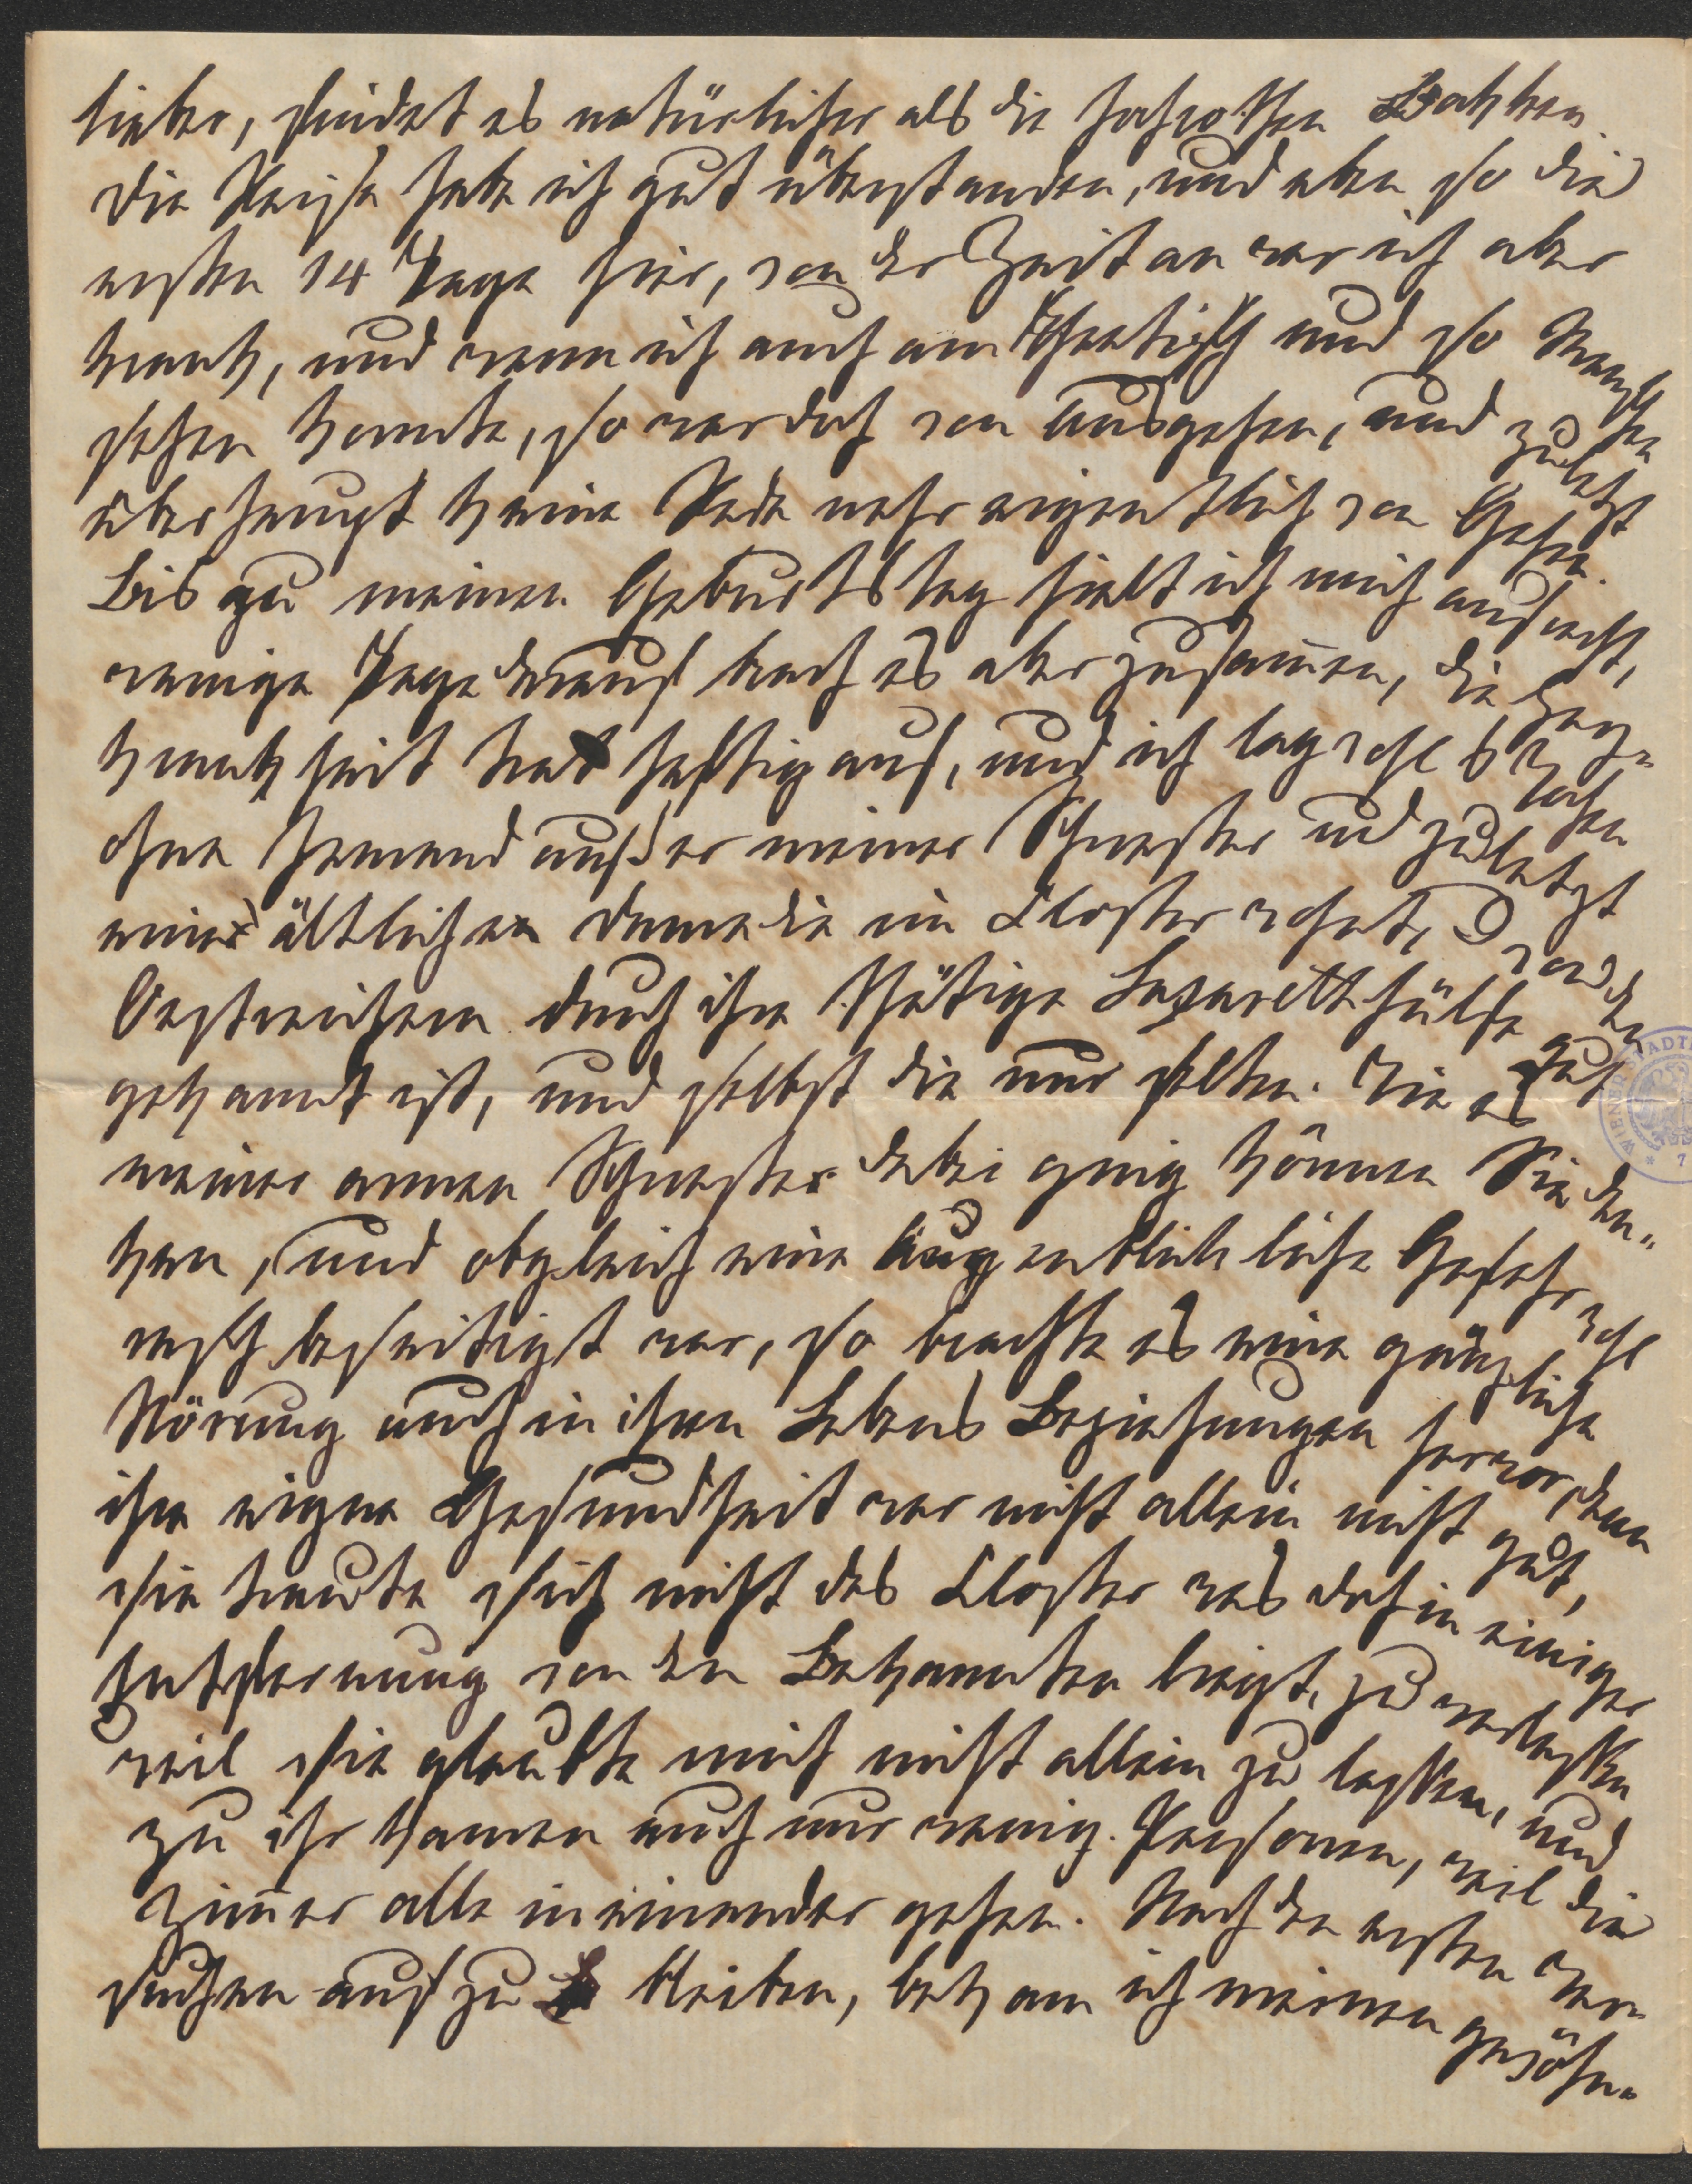 lieber, findet es natürlicher als die hochrothen Backen.
Die Reise habe ich gut überstanden, und eben so die
ersten 14 Tage hier, von der Zeit an war ich aber
krank, und wenn ich auch am Theetisch und so Menschen
sehen konnte, so war doch von Ausgehen, und zuletzt
überhaupt keine Rede mehr eigentlich von Gehen.
Bis zu meinen Geburtstag hielt ich mich aufrecht,
wenige Tage drauf brach es aber zusam̄en, die
krankheit trat heftig auf, und ich lag wohl 6 Wochen
ohne Jemand außer meiner Schwester und zuletzt
einer ältlichen Dame die im Kloster wohnt, von den
Oestreichern durch ihre thätige Lazaretthülfe gut
gekannt ist, und selbst die nur selten. Wie es
meiner armen Schwester dabei ging können Sie den-
ken, und obgleich eine augenblickliche Gefahr wohl
rasch beseitigt war, so brachte es eine gänzliche
Störung auch in ihren Lebens Beziehungen hervor, denn
ihre eigne Gesundheit war nicht allein nicht gut,
sie traute sich nicht das Kloster was doch in einiger
Entfernung von den Bekannten liegt, zu verlassen
weil sie glaubte mich nicht allein zu lassen, und
zu ihr kamen auch nur wenig Personen, weil die
Zim̄er alle in einander gehen. Nach den ersten Ver-
suchen auf zu bleiben, bekam ich meinen gewöhn-
WIENER STADTB